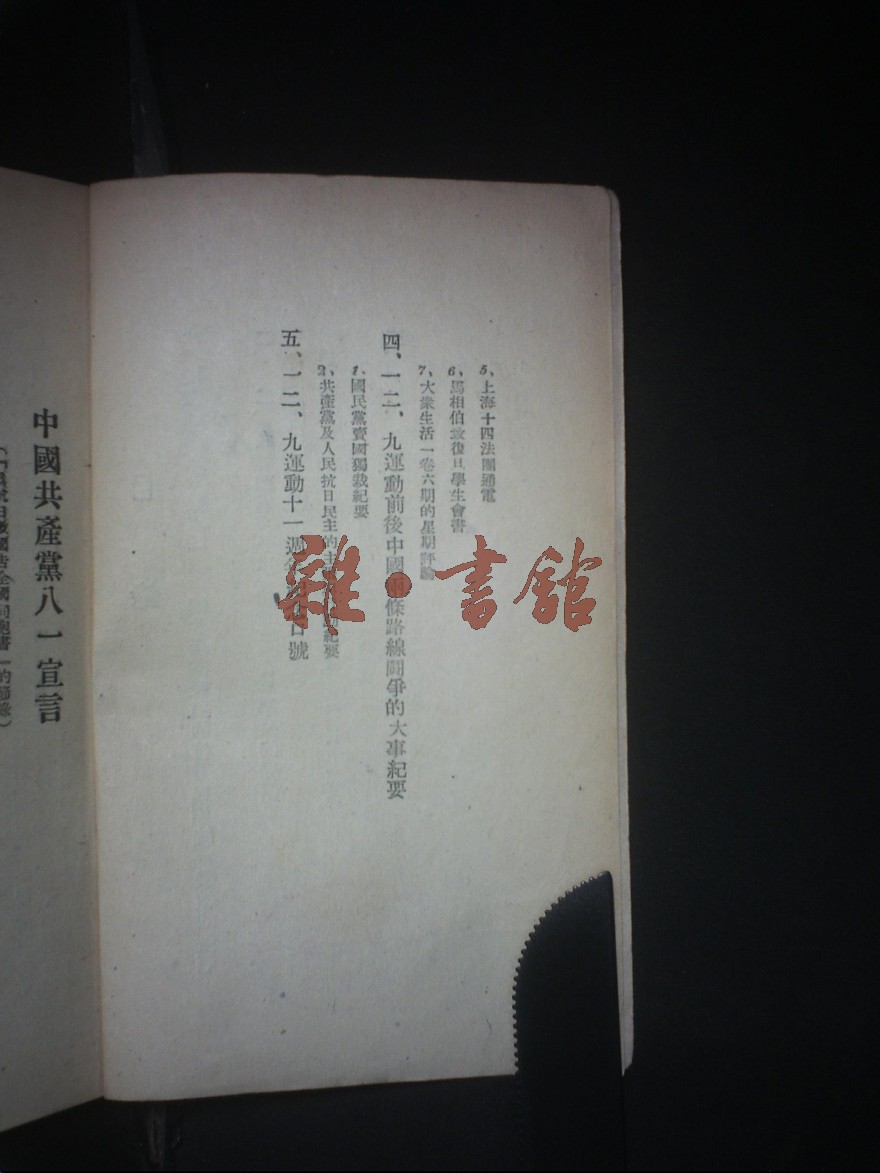 5、上海十四法團通電
6、馬相伯致復旦學生會書
7、大衆生活一卷六期的星期評論
四、一二、九運動前後中國兩條路線鬪爭的大事紀要
1、國民黨賣國獨裁紀要
2、共產黨及人民抗日民主的主 紀要
五、一二、九運動十一週年 號
雜·書館
中國共產黨八一宣言
告全國同胞書 的節錄）